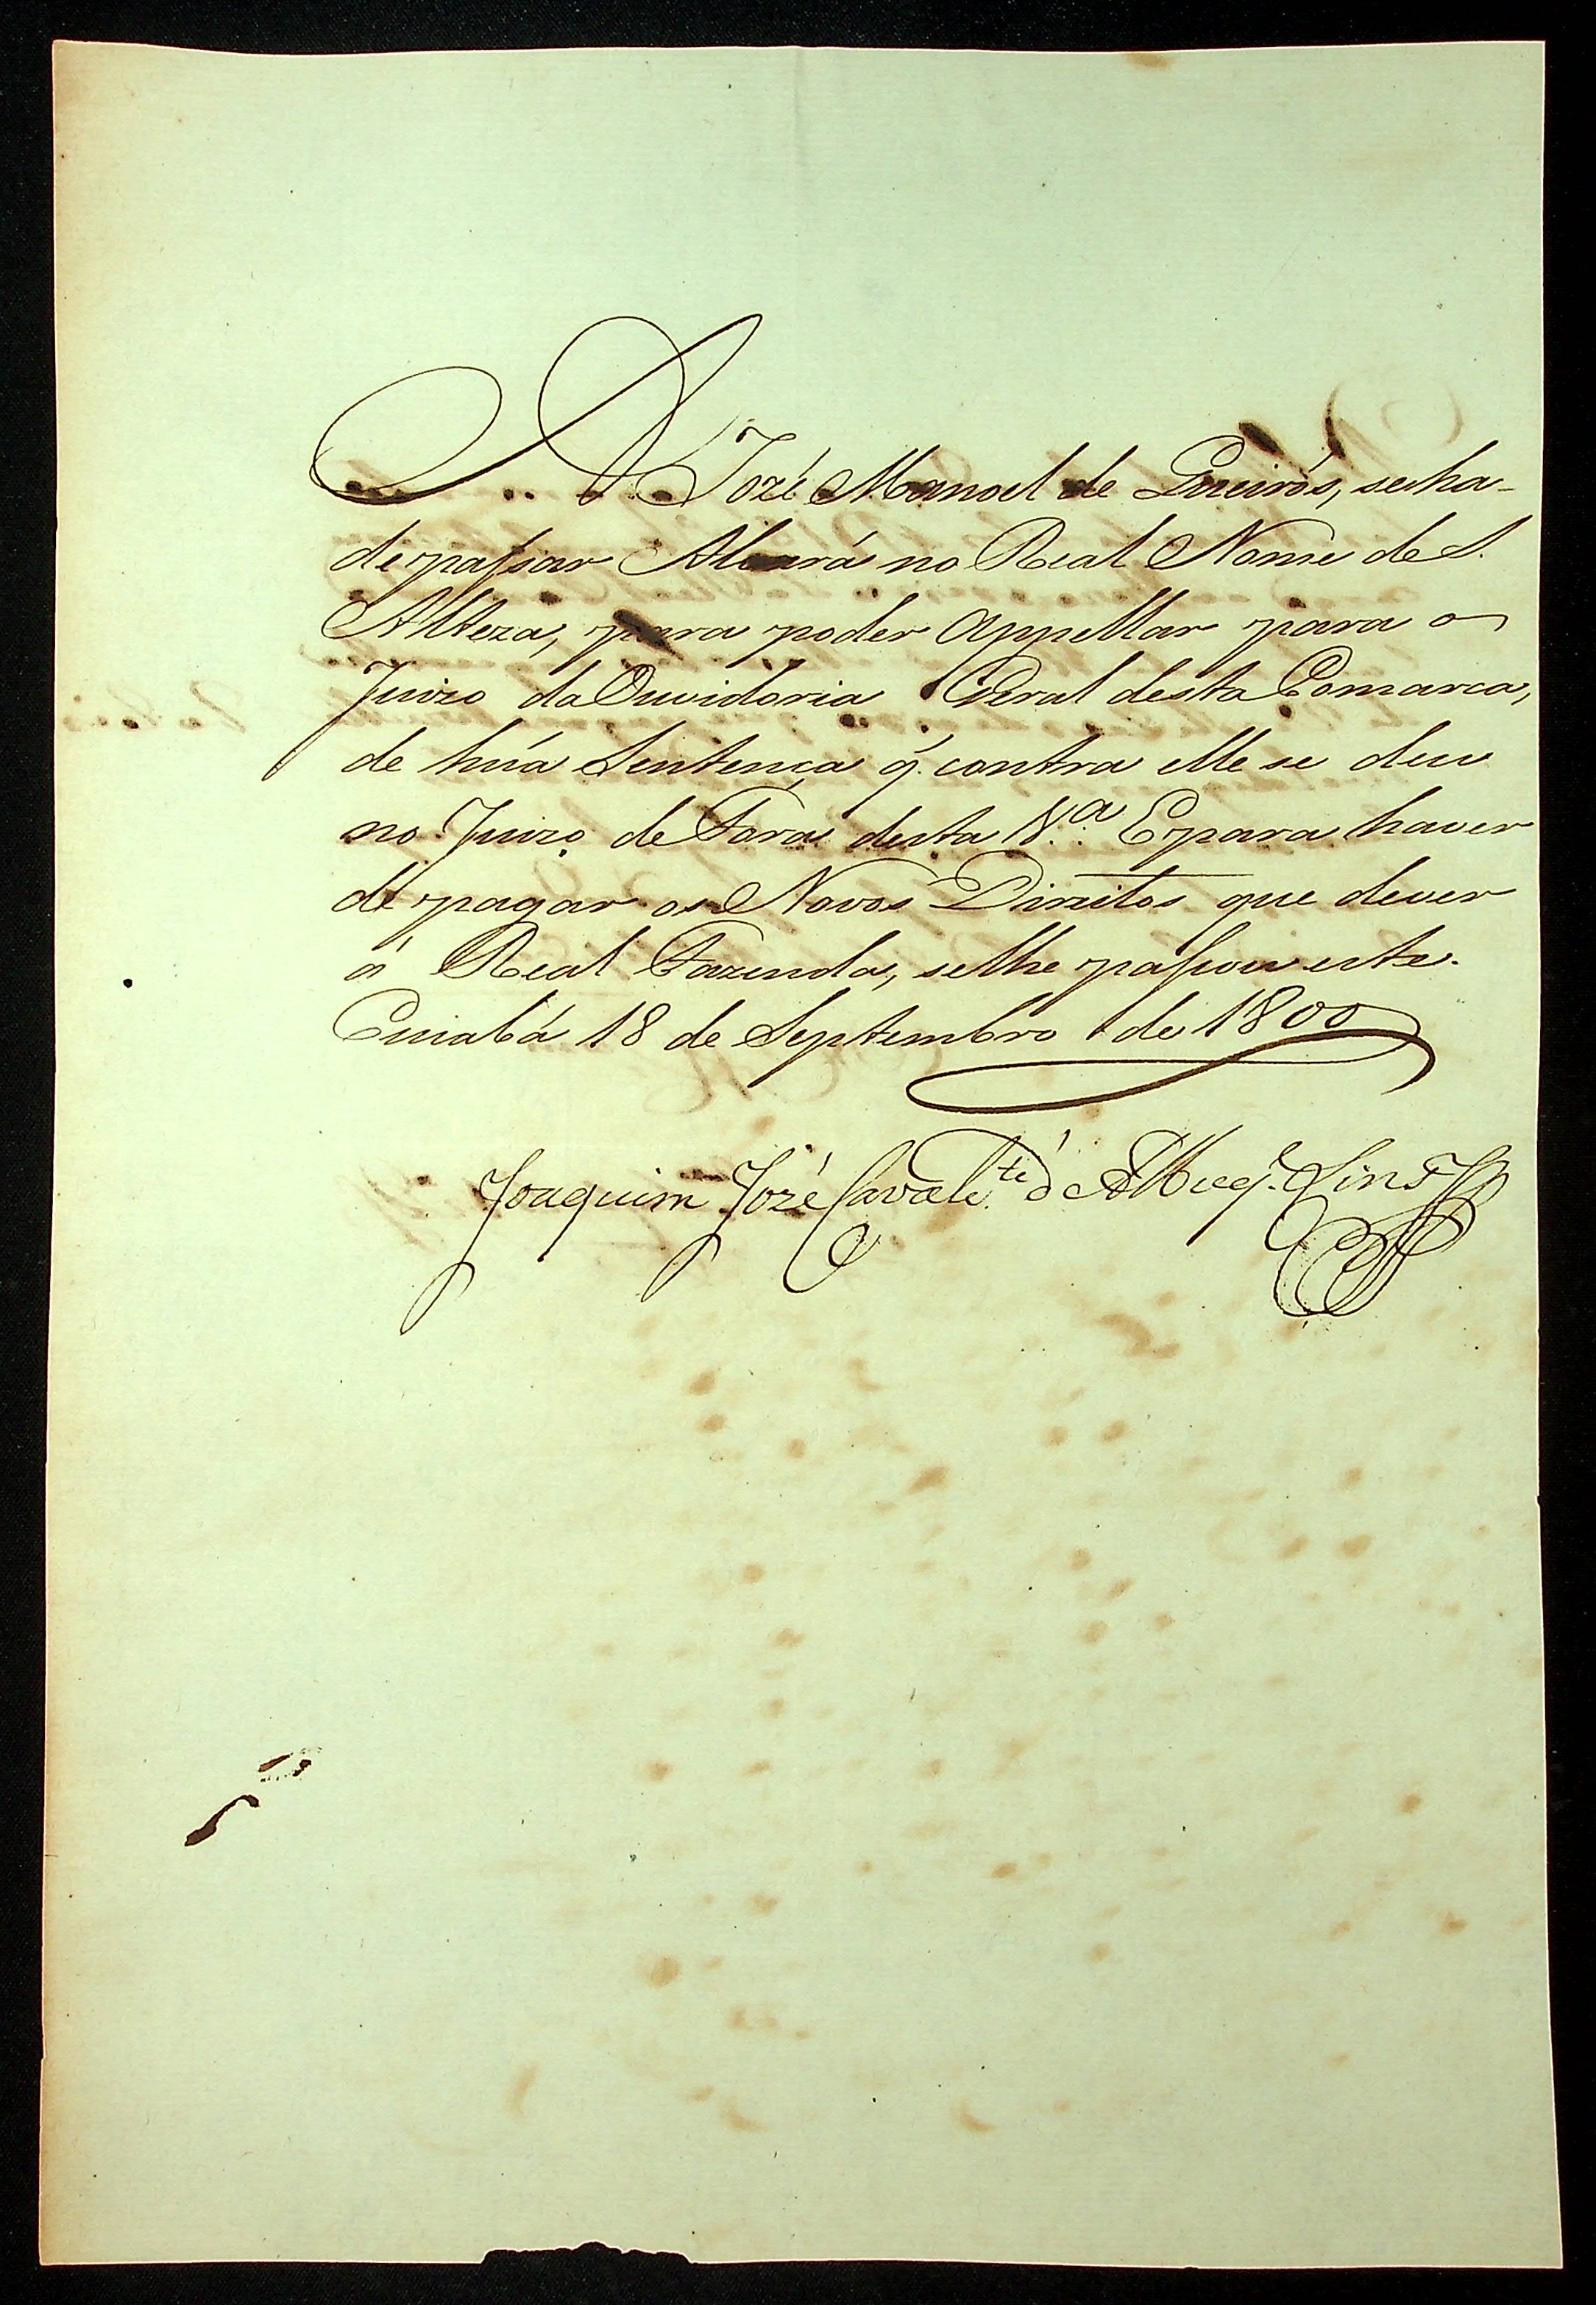 A Jozé Manoel de Queirós, seha-
de passar Alvará no Real Nome de S.
Alteza, para poder appellar para o
Juizo da Ouvidoria Geral desta Comarca,
de húa Sentença q. contra elle se deu
no Juizo de Fora desta V.ª E para haver
de pagar os Novos Direitos que dever
á Real Fazenda, selhe passou este.
Cuiabá 18 de Septembro de 1800
Joaquim Jozé Cavalc.te d'Albuq.e Lins